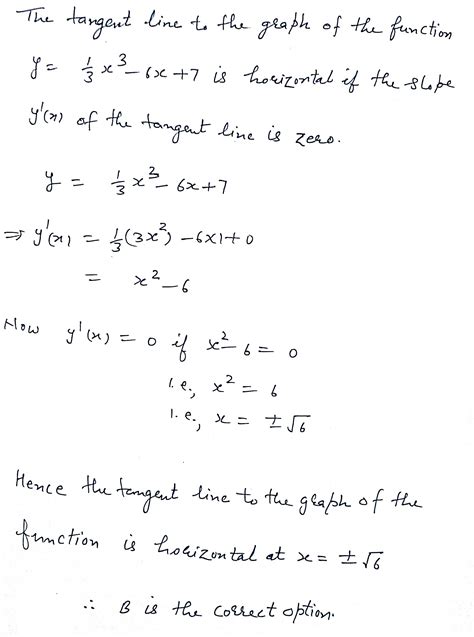 The tangent line to the graph of the function
y = 1/3 x³ - 6x + 7 is horizontal if the slope
y'(x) of the tangent line is zero.
y = 1/3 x³ - 6x + 7
⇒ y'(x) = 1/3 (3x²) - 6×1 + 0
= x² - 6
Now y'(x) = 0 if x² - 6 = 0
i.e., x² = 6
i.e., x = ±√6
Hence the tangent line to the graph of the
function is horizontal at x = ±√6
∴ B is the correct option.